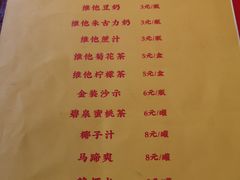 维他豆奶 3元/瓶
维他朱古力奶 3元/瓶
维他蔗汁 3元/瓶
维他菊花茶 5元/盒
维他柠檬茶 5元/盒
金装沙示 6元/瓶
碧泉蜜桃茶 6元/罐
椰子汁 8元/罐
马蹄爽 8元/罐